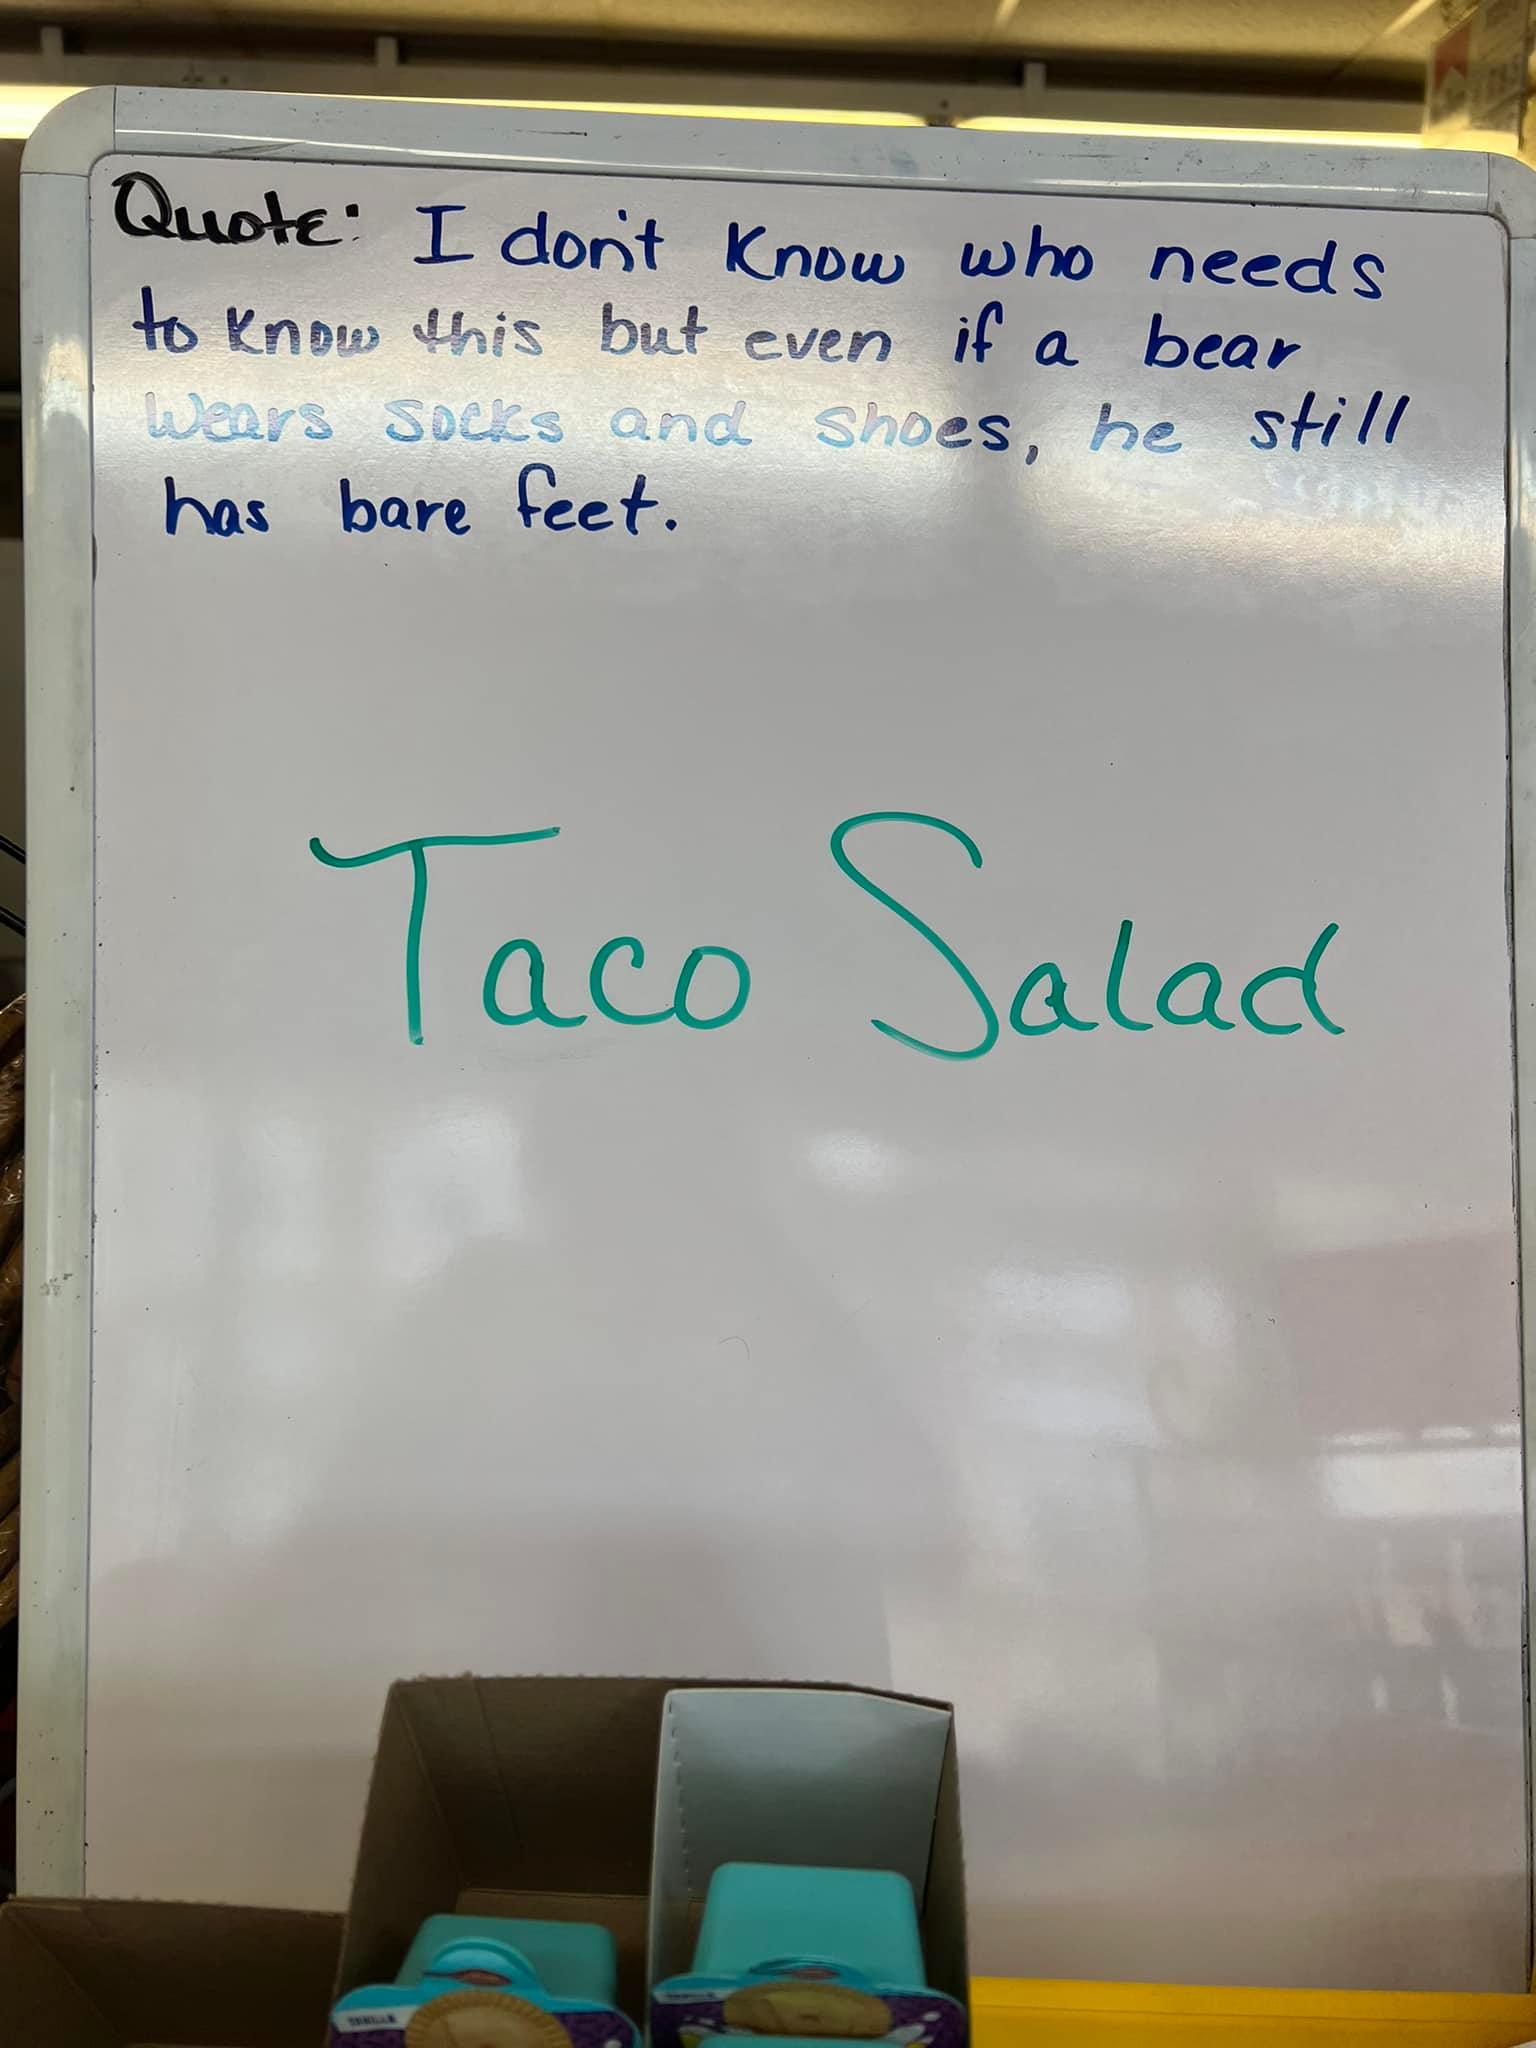 Quote: I don't know who needs
to know this but even if a bear
wears socks and shoes, he still
has bare feet.
Taco Salad